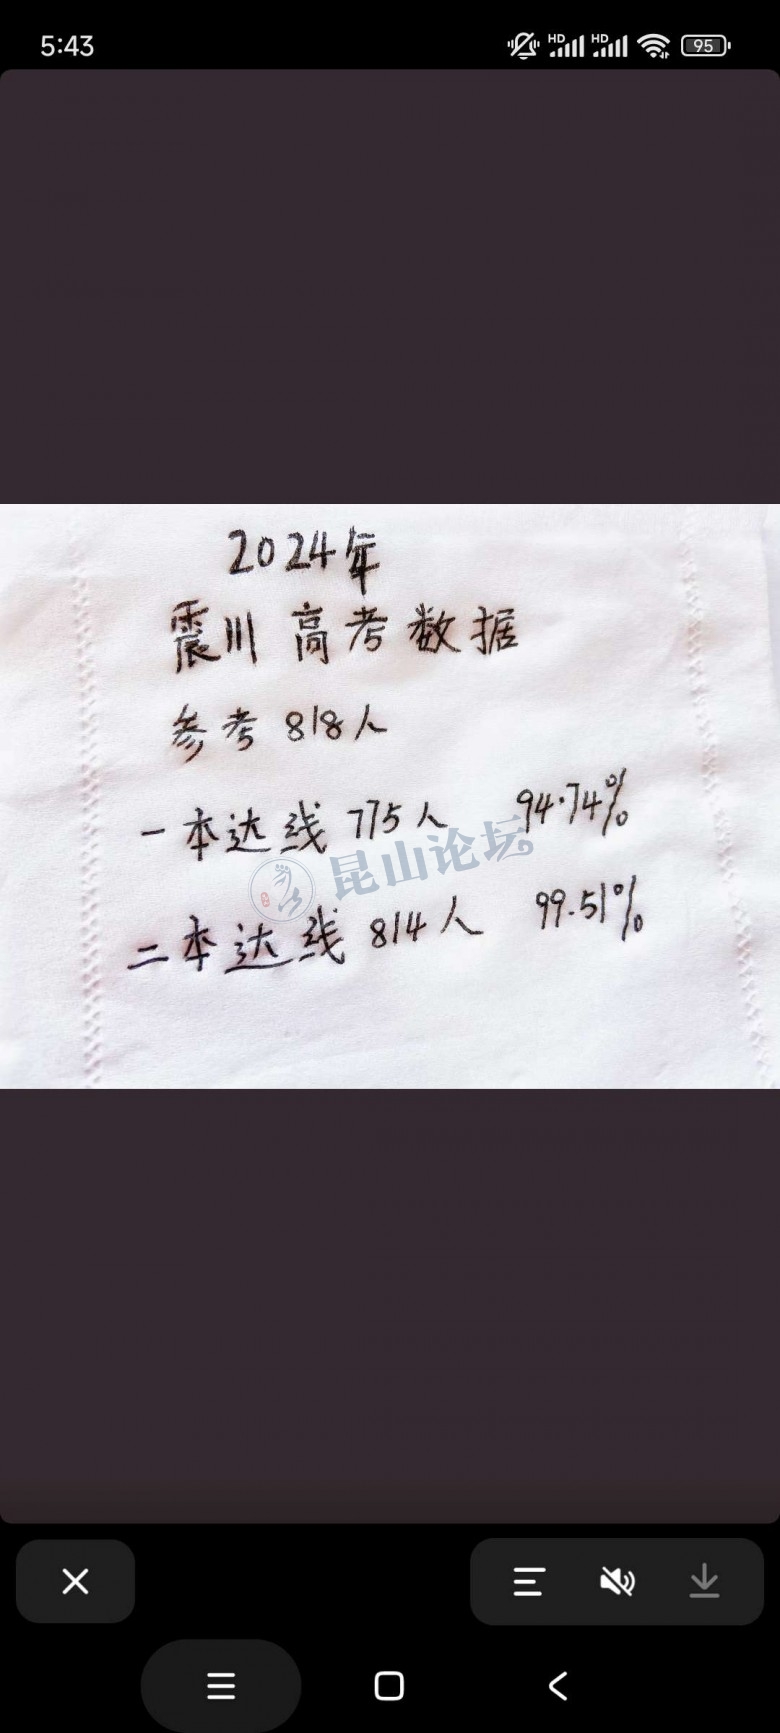 5:43
HD HD 95
2024年
震川高考数据
参考 818人
一本达线 775人 94.74%
昆山论坛
二本达线 814人 99.51%